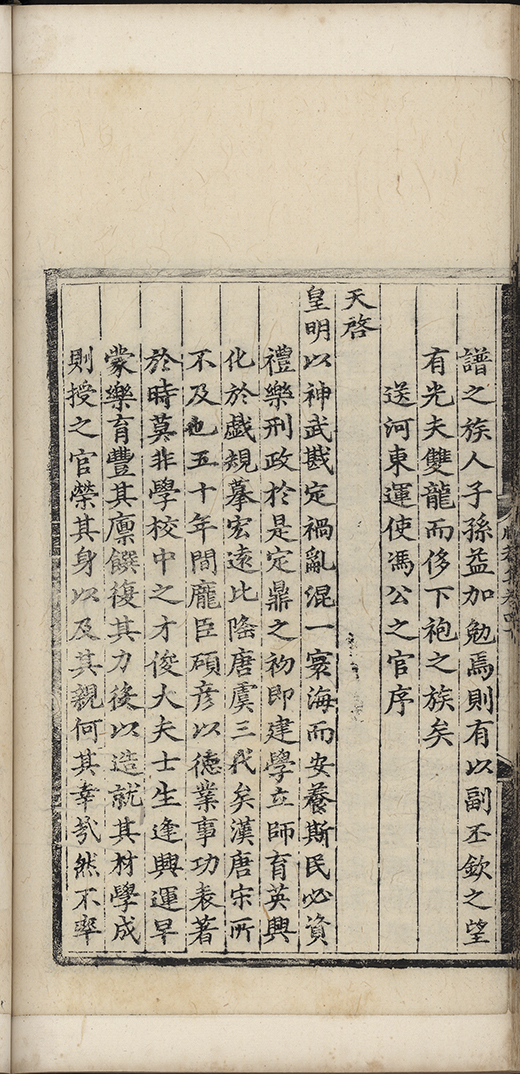 譜之族人子孫益加勉焉則有以副丕欽之望
有光夫雙龍而侈下袍之族矣
送河東運使馮公之官序
天啓
皇明以神武戡定禍亂混一寰海而安養斯民必資
禮樂刑政於是定鼎之初即建學立師育英興
化於戲規摹宏遠比隆唐虞三代矣漢唐宋所
不及也五十年間龐臣碩彥以德業事功表著
於時莫非學校中之才俊大夫士生逢興運早
蒙樂育豐其廪饌復其力役以造就其材學成
則授之官榮其身以及其親何其幸歟然不率